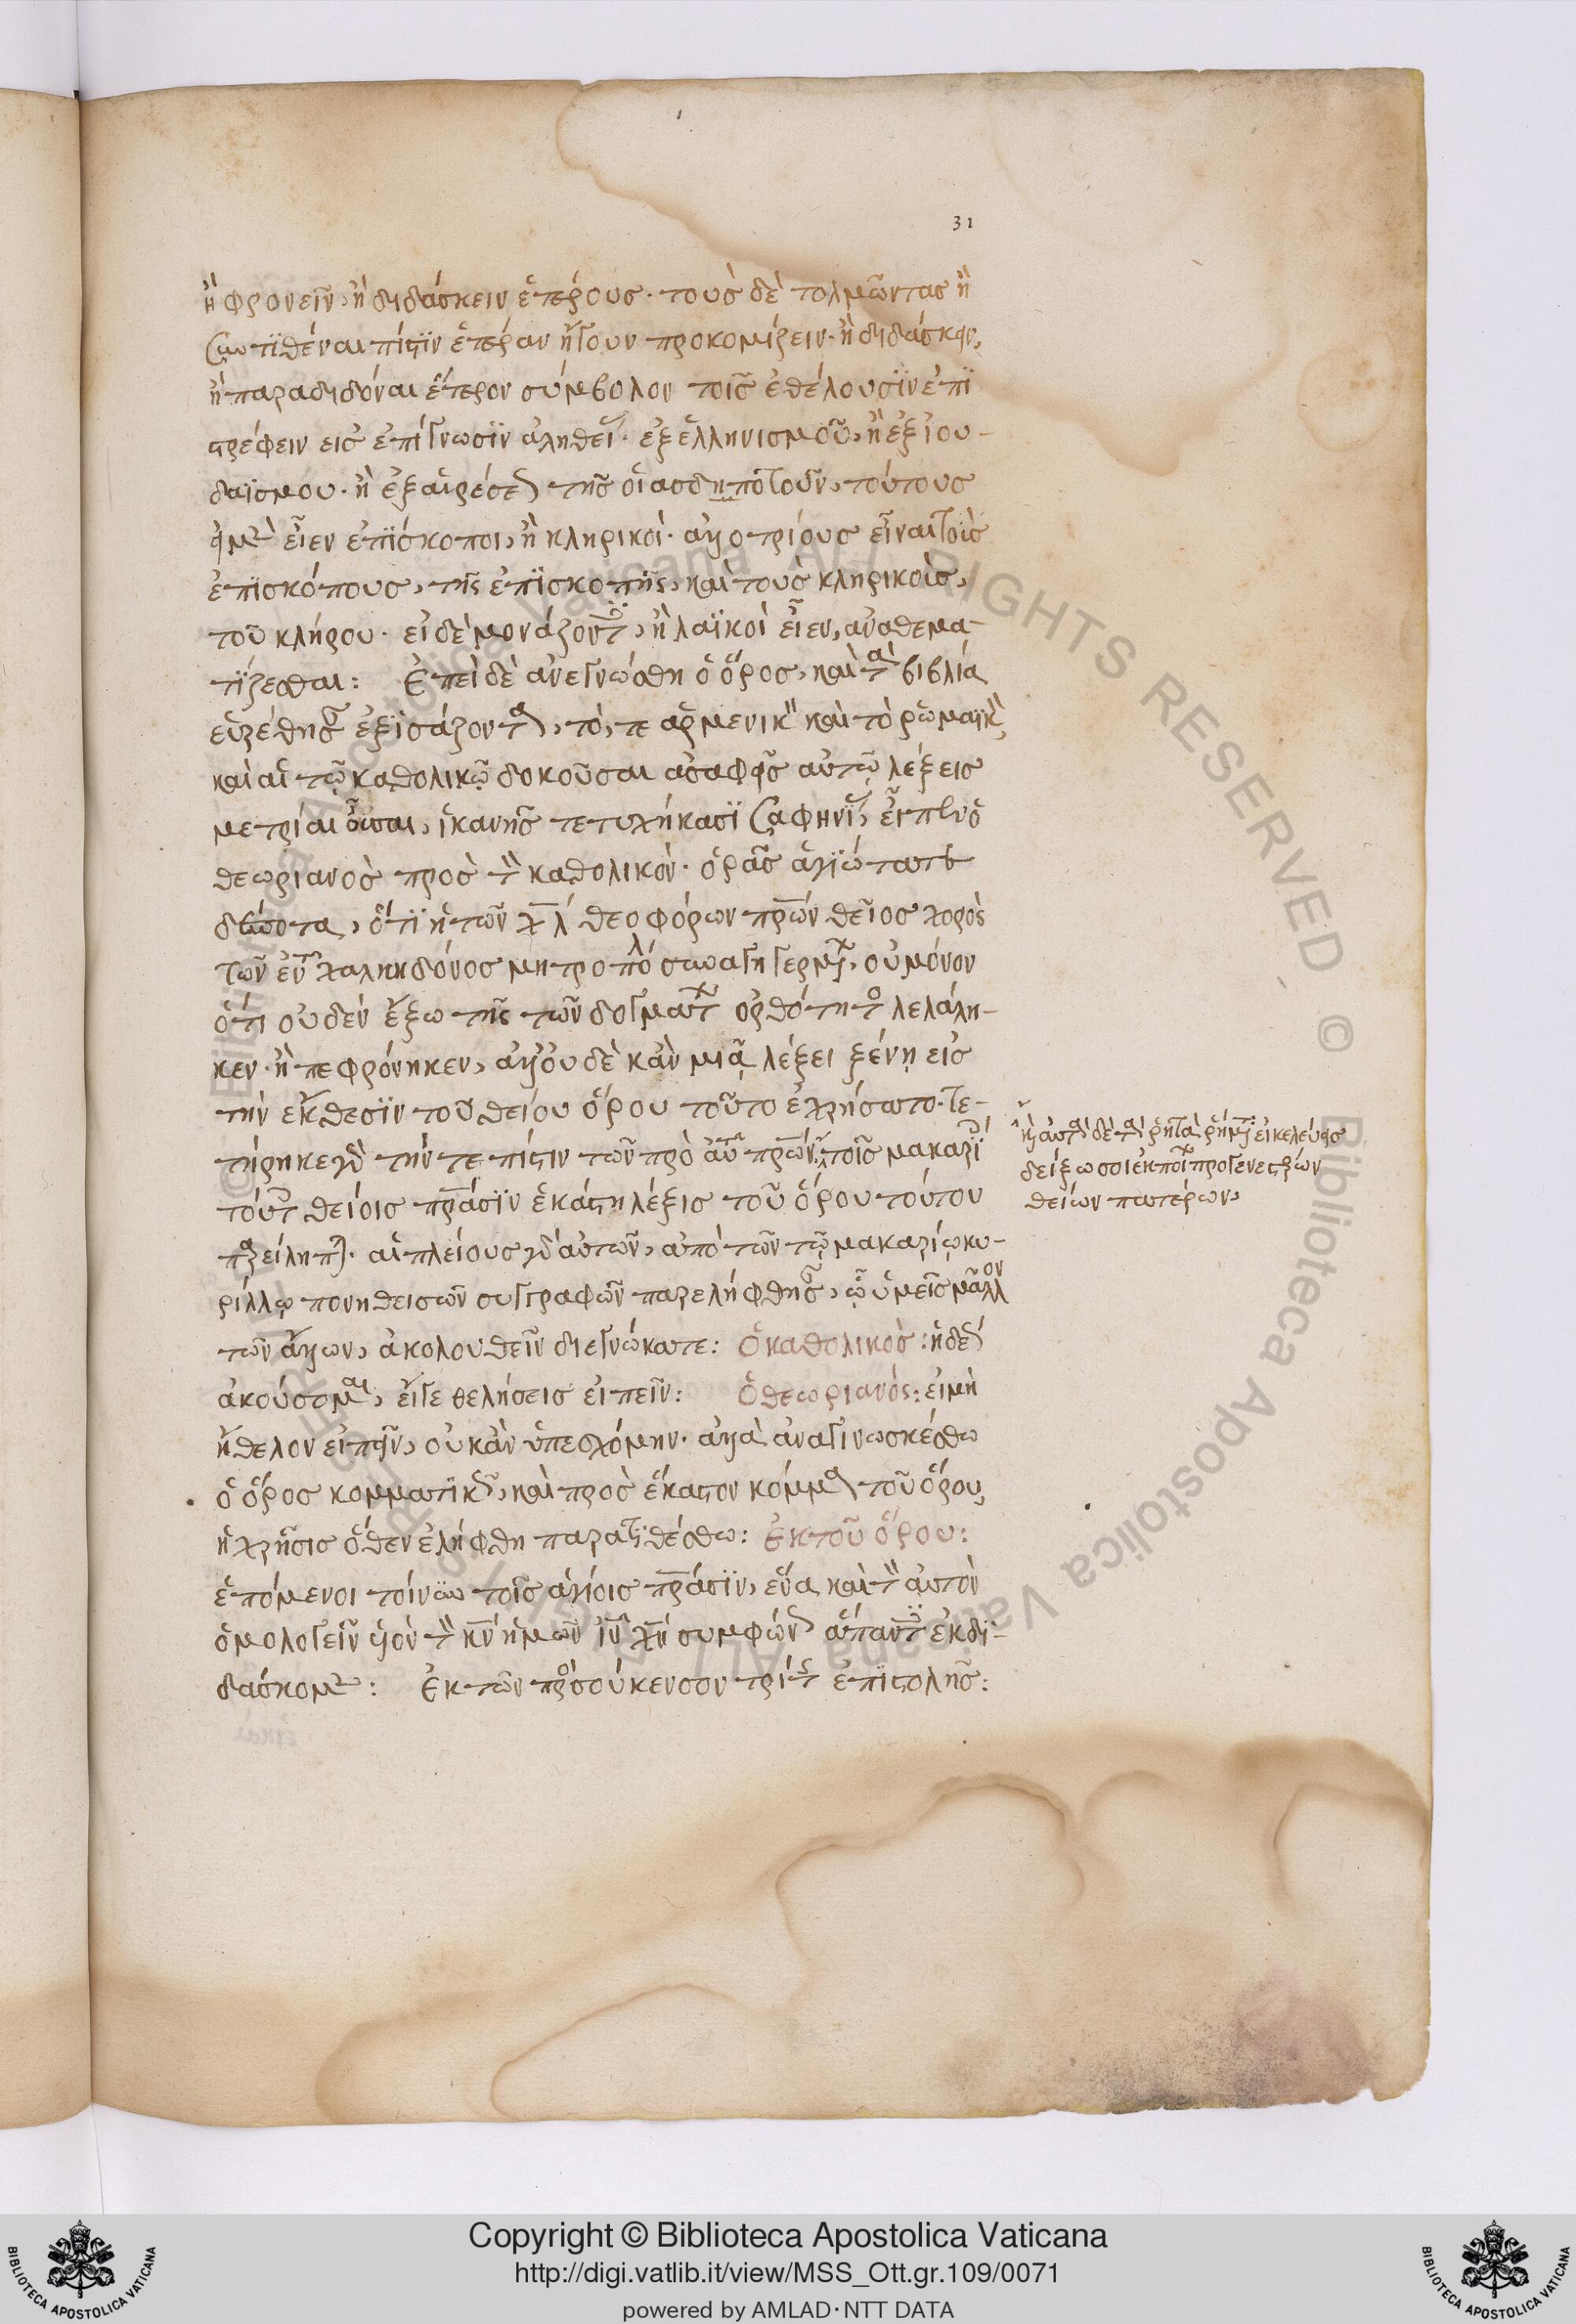 31
ἢ φρονεῖν, ἢ διδάσκειν ἑτέρους· τοὺς δὲ τολμῶντας ἢ
συντιθέναι πίστιν ἑτέραν ἤγουν προκομίζειν· ἢ διδάσκειν,
ἢ παραδιδόναι ἕτερον σύμβολον τοῖς ἐθέλουσιν ἐπι
στρέφειν εἰς ἐπίγνωσιν ἀληθεί· ἐξ ἑλληνισμοῦ, ἢ ἐξ ἰου-
δαϊσμοῦ· ἢ ἐξ αἱρέσε τῆς οἱασδηποτοῦν, τούτους
εἰ μὲν εἶεν ἐπίσκοποι, ἢ κληρικοί· ἀλλοτρίους εἶναι τοὺς
ἐπισκόπους, τῆς ἐπισκοπῆς, καὶ τοὺς κληρικοὺς,
τοῦ κλήρου· εἰ δὲ μονάζοντ, ἢ λαϊκοὶ εἶεν, ἀναθεμα-
τίζεσθαι: Ἐπεὶ δὲ ἀνεγνώσθη ὁ ὅρος, καὶ τὰ βιβλία
εὑρέθησ ἐξισάζοντα, τό, τε ἀρμενικ καὶ τὸ ῥωμαϊκ
καὶ αἱ τῷ καθολικῷ δοκοῦσαι ἀσαφεῖς αὐτῷ λέξεις
μετρίαι οὖσαι, ἱκανῆς τετυχήκασι σαφηνεί, εἶπεν ὁ
θεωριανὸς πρὸς τὸν καθολικόν· ὁρᾶς ἁγιώτατε
δέσποτα, ὅτι ἡ τῶν χλ θεοφόρων πρων θεῖος χορὸς
τῶν ἐν χαλκηδόνος μητροπόλ συναγηγερμ, οὐ μόνον
ὅτι οὐδὲν ἔξω τῆς τῶν δογμάτ ὀρθότητο λελάλη-
κεν· ἢ πεφρόνηκεν, ἀλλ' οὐδὲ κἂν μιᾷ λέξει ξένῃ εἰς
τὴν ἔκθεσιν τοῦ θείου ὅρου τοῦτο ἐχρήσατο. τε-
τήρηκε γὰρ τήν τε πίστιν τῶν πρὸ αὐτ πρων τοῖς μακαρί
τούτ θείοις πράσιν ἑκάστη λέξις τοῦ ὅρου τούτου
παρείληπτ. αἱ πλείους γὰρ αὐτῶν, ἀπὸ τῶν τῷ μακαρίῳ κυ-
ρίλλῳ πονηθεισῶν συγγραφῶν παρελήφθησ, ᾧ ὑμεῖς μᾶλλον
τῶν ἄλλων, ἀκολουθεῖν διεγνώκατε: Ὁ καθολικὸς: ἡδέ
ἀκούσομαι, εἴγε θελήσεις εἰπεῖν: Ὁ θεωριανός: εἰ μὴ
ἤθελον εἰπεῖν, οὐκ ἂν ὑπεσχόμην· ἀλλὰ ἀναγινωσκέσθω
ὁ ὅρος κομματικ, καὶ πρὸς ἕκαστον κόμμα τοῦ ὅρου,
ἡ χρῆσις ὅθεν ἐλήφθη παρατιθέσθω: Ἐκ τοῦ ὅρου:
ἑπόμενοι τοίνυν τοῖς ἁγίοις πράσιν, ἕνα καὶ τὸν αὐτὸν
ὁμολογεῖν υἱὸν τὸν κν ἡμῶν ιν χν συμφών ἅπαντ ἐκδι-
δάσκομεν: Ἐκ τῶν πρὸ σούκενσον τρίτ ἐπιστολῆς:
κατ αὐτὰ δὲ τὰ ῥητὰ ῥήμ εἰ κελεύεις
δείξω σοι ἐκ ποί προγενεστέρων
θείων πατέρων,
Copyright © Biblioteca Apostolica Vaticana
http://digi.vatlib.it/view/MSS_Ott.gr.109/0071
powered by AMLAD·NTT DATA